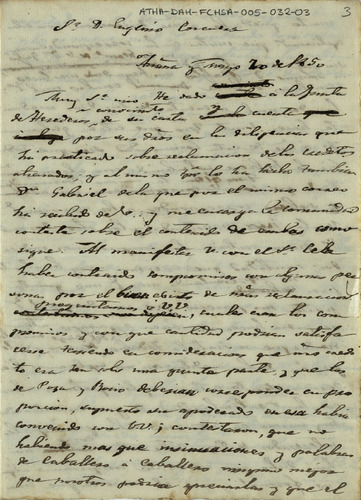 ATHA-DAH-FCHSA-005-032-03
3
Sr. D. Eugenio
Añana y Mayo 20 de 1850
Muy Sr. mio He dado a la Junta
de Herederos, de su carta
por sus dias en la diligencia que
ha practicado sobre reclamacion de los creditos
atrasados, y al mismo tpo. lo ha hecho tambien
Dn. Gabriel de la que por el mismo correo
ha recibido de V.; y me encarga la Comunidad
conteste sobre el contenido de ambas como
sigue. Al manifestar V. con el Sr.
habia contraido compromisos con algunas per
sonas por el buen exito de ntras. reclamaciones
preguntamos a V. cuales eran los com
promisos y con que cantidad podrian satisfa
cerse teniendo en consideracion que nro. credi
to era tan solo una quinta parte, y que los
de Poza y Rosio debieran corresponder en pro
porcion, supuesto su apoderado en esa habia
convenido con V.; y contestaron, que no
habiendo mas que insinuaciones y palabras
de caballero a caballero ninguno mejor
que nosotros podria apreciarlas y que el